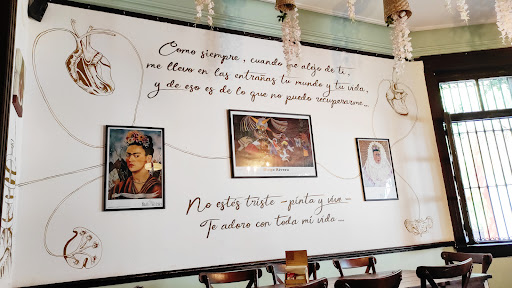 Como siempre, cuando me alejo de ti,
me llevo en las entrañas tu mundo y tu vida,
y de eso es de lo que no puedo recuperarme...
No estés triste – pinta y vive –
Te adoro con toda mi vida...